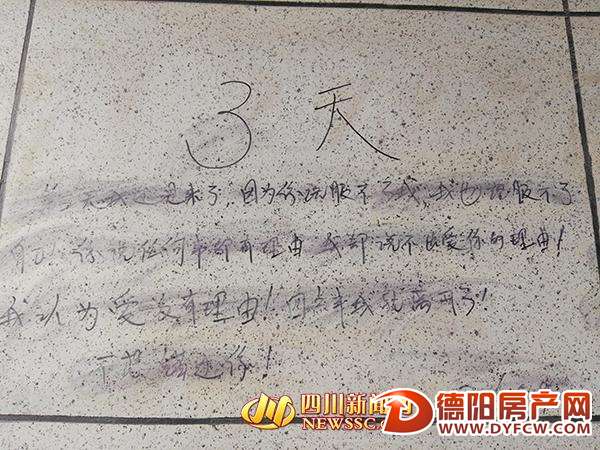 3天
天我还是来了,因为你说服不了我,我也说服不了
自己 你说任何事都有理由 我却说不出爱你的理由!
我认为爱没有理由!回来我就离开了!
不想错过你!
四川新闻网
NEWSSC
德阳房产网
WWW.DYFCW.COM